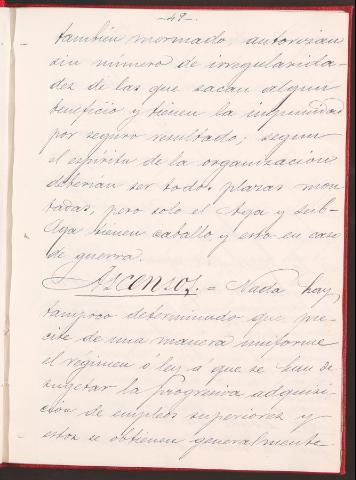 -49-
tambien mermado, autorizan
sin número de irregularida-
dez de las que sacan algun
beneficio y tienen la impunidad
por seguro resultado; segun
el espíritu de la organización
deberian ser todos plazas mon-
tadas, pero solo el Aga y sub-
Aga tienen caballo y esto en caso
de guerra.
Ascensos. = Nada hay,
tampoco determinado que pre-
cite de una manera uniforme
el régimen ó ley á que se han de
sugetar la progresiva adquisi-
ción de empleos superiores y
estos se obtienen generalmente-